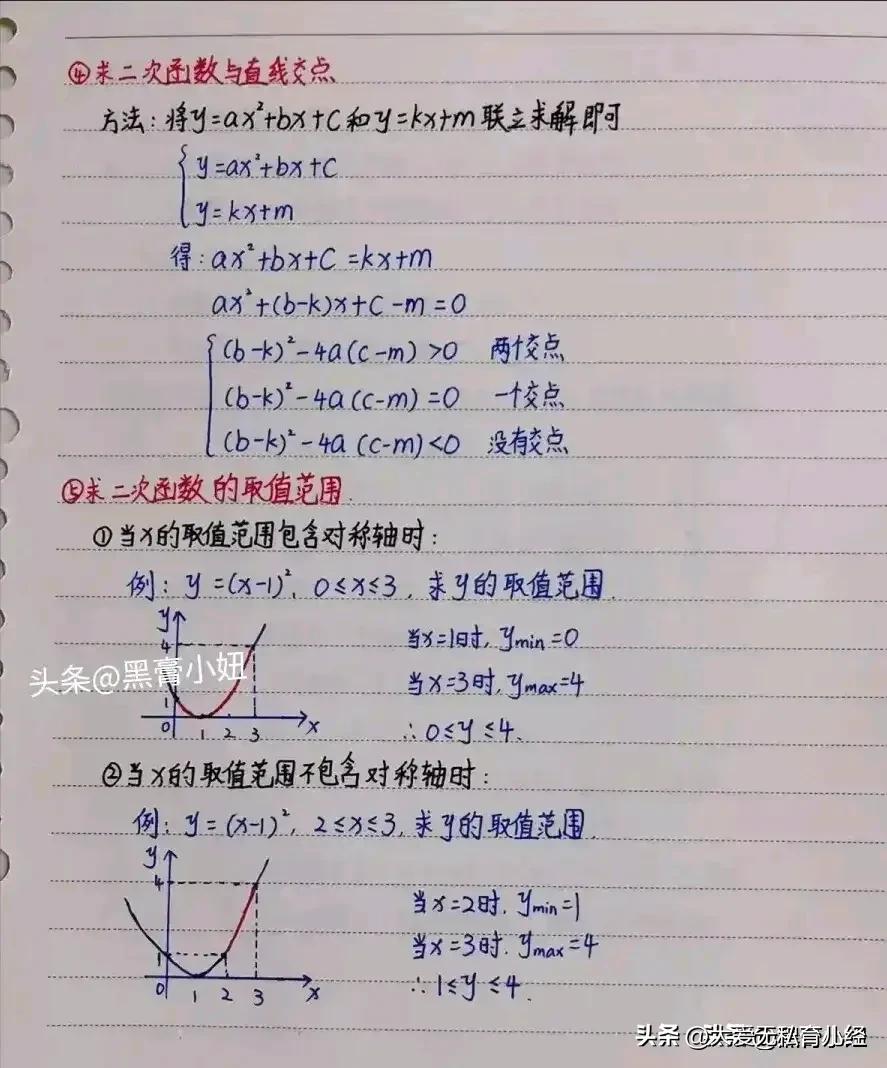 ④求二次函数与直线交点
方法:将y=ax²+bx+C和y=kx+m联立求解即可
y=ax²+bx+C
y=kx+m
得:ax²+bx+C=kx+m
ax²+(b-k)x+C-m=0
(b-k)²-4a(c-m)>0 两个交点
(b-k)²-4a(c-m)=0 一个交点
(b-k)²-4a(c-m)<0 没有交点
⑤求二次函数的取值范围.
①当x的取值范围包含对称轴时:
例:y=(x-1)², 0≤x≤3, 求y的取值范围.
y
4
1
0 1 2 3 x
当x=1时, ymin=0
当x=3时, ymax=4
∴0≤y≤4.
头条@黑膏小妞
②当x的取值范围不包含对称轴时:
例:y=(x-1)², 2≤x≤3, 求y的取值范围.
y
4
1
0 1 2 3 x
当x=2时, ymin=1
当x=3时, ymax=4
∴1≤y≤4.
头条